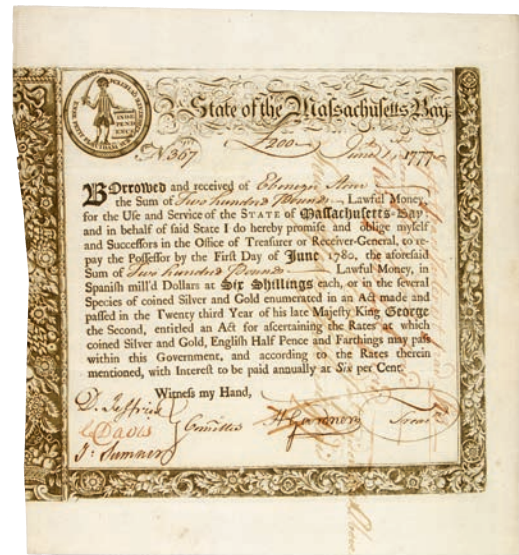 ENSE PETIT PLACIDAM SUB LIBERTATE QUIETEM
INDE
PEND
ENCE
State of the Massachusetts Bay
£200 June 1, 1777
No. 367
BOrrowed and received of Ebenezer
the Sum of Two hundred Pounds Lawful Money,
for the Use and Service of the STATE of Massachusetts-Bay
and in behalf of said State I do hereby promise and oblige myself
and Successors in the Office of Treasurer or Receiver-General, to re-
pay the Possessor by the First Day of June 1780, the aforesaid
Sum of Two hundred Pounds Lawful Money, in
Spanish mill'd Dollars at Six Shillings each, or in the several
Species of coined Silver and Gold enumerated in an Act made and
passed in the Twenty third Year of his late Majesty King George
the Second, entitled an Act for ascertaining the Rates at which
coined Silver and Gold, English Half Pence and Farthings may pass
within this Government, and according to the Rates therein
mentioned, with Interest to be paid annually at Six per Cent.
Witness my Hand,
D. Jeffries
Davis Committee H Gardner Treasr
J: Sumner